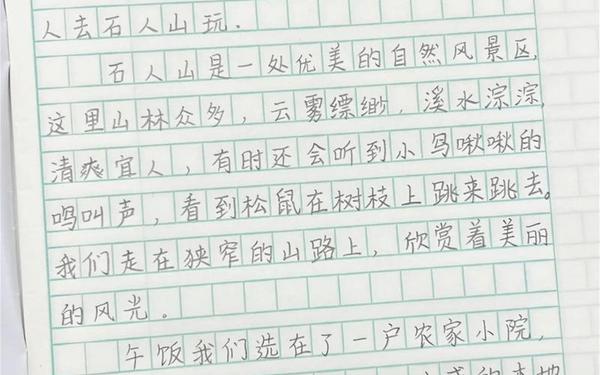 人去石人山玩.
石人山是一处优美的自然风景区,
这里山林众多，云雾缥缈.溪水淙淙,
清爽宜人，有时还会听到小鸟啾啾的
鸣叫声，看到松鼠在树枝上跳来跳去。
我们走在狭窄的山路上，欣赏着美丽
的风光.
午饭我们选在了一户农家小院,
的本地